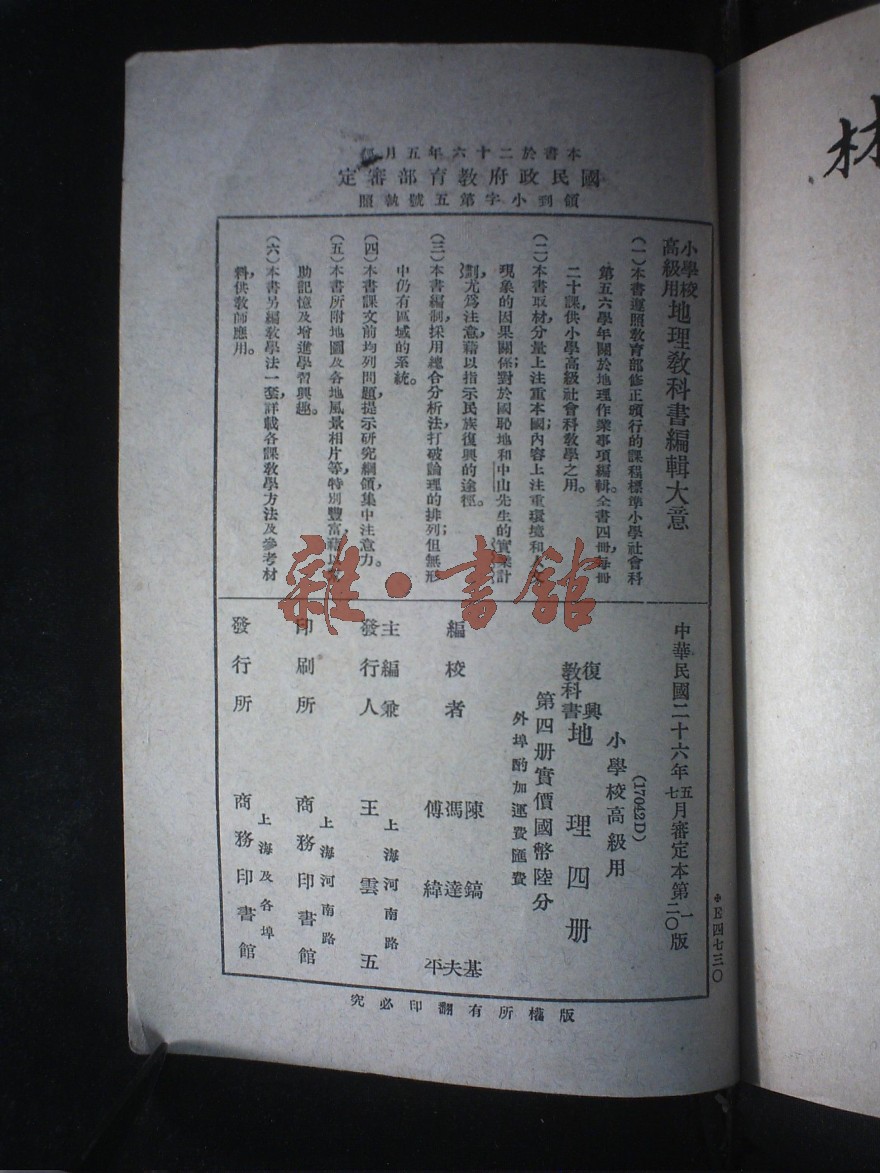 本書於二十六年五月經
國民政府教育部審定
領到小字第五號執照
小學校高級用地理教科書編輯大意
(一)本書遵照教育部修正頒行的課程標準小學社會科
第五六學年關於地理作業事項編輯。全書四冊,每冊
二十課,供小學高級社會科教學之用。
(二)本書取材,分量上注重本國;內容上注重環境和人文
現象的因果關係;對於國恥地和中山先生的實業計
劃,尤為注意,藉以指示民族復興的途徑。
(三)本書編制,採用總合分析法,打破論理的排列;但無形
中仍有區域的系統。
(四)本書課文前均列問題,提示研究綱領,集中注意力。
(五)本書所附地圖及各地風景相片等,特別豐富,藉以
助記憶及增進學習興趣。
(六)本書另編教學法一套,詳載各課教學方法及參考材
料,供教師應用。
中華民國二十六年五七月審定本第一二〇版
(17042D)
小學校高級用
復興教科書 地理四冊
第四冊實價國幣陸分
外埠酌加運費匯費
編校者 陳鎬基
馮達夫
傅緯平
主編兼發行人 王雲五
上海河南路
印刷所 商務印書館
上海河南路
發行所 商務印書館
上海及各埠
版權所有翻印必究
＊E四七三〇
林
雜·書館